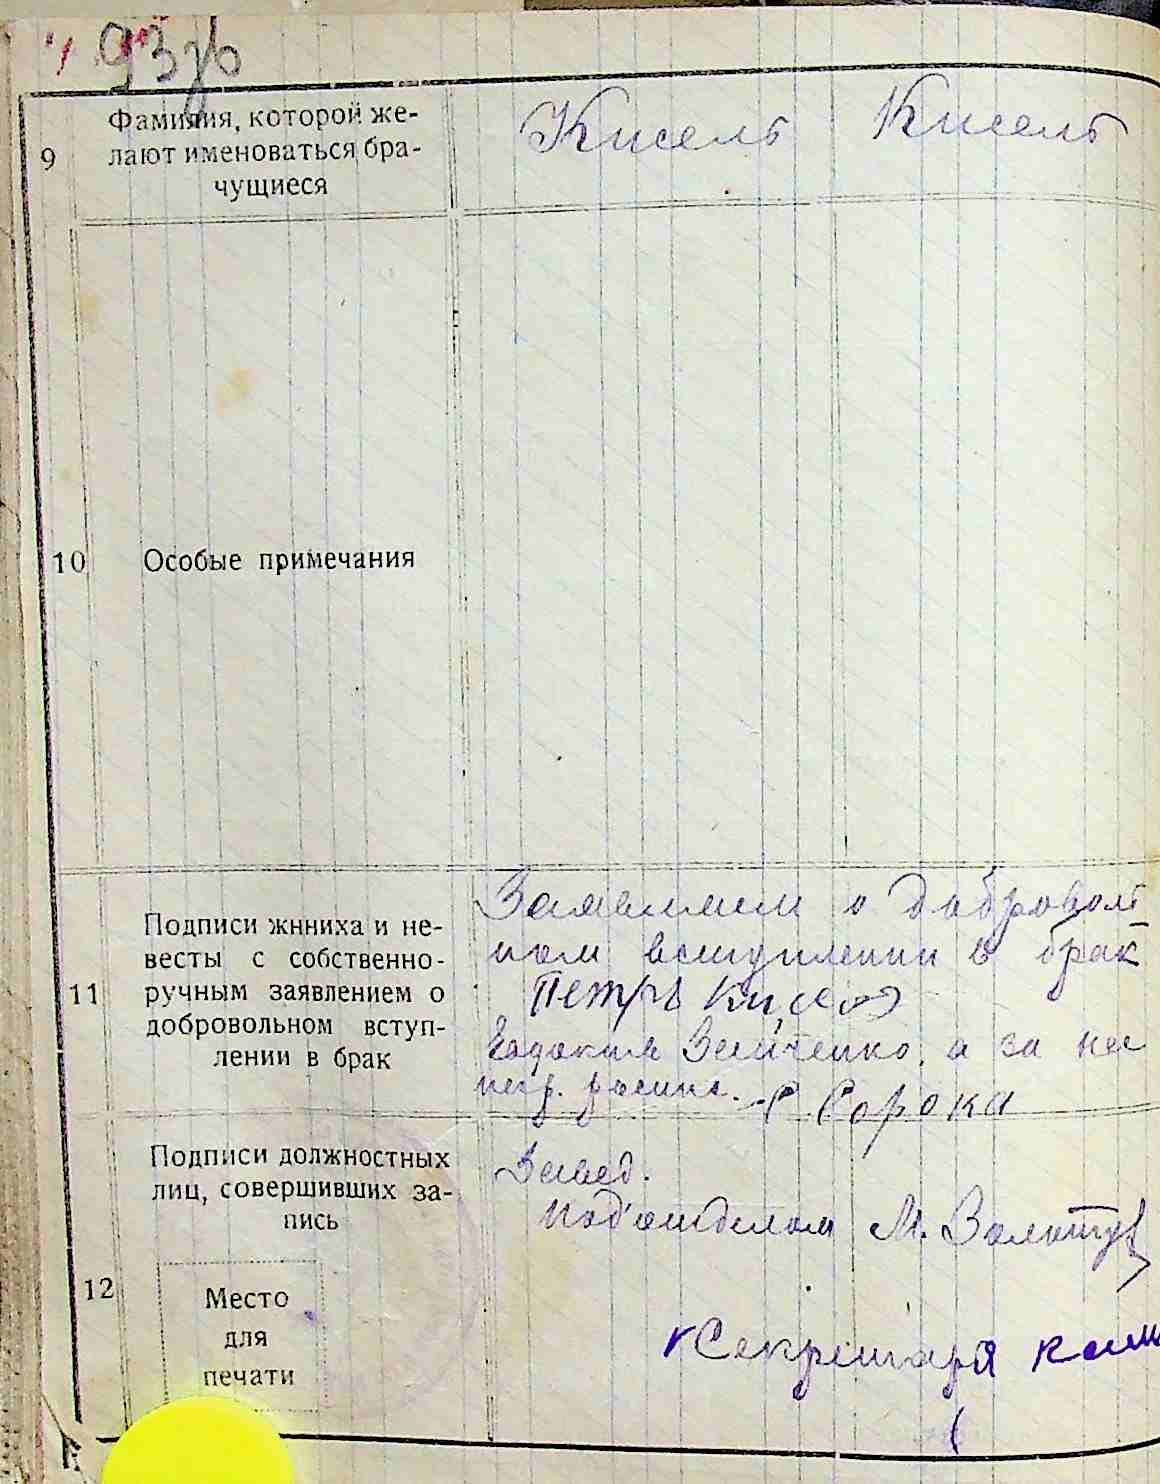 93 зв
9
Фамилия, которой же-
лают именоваться бра-
чущиеся
Кисель Кисель
10
Особые примечания
11
Подписи жнниха и не-
весты с собственно-
ручным заявлением о
добровольном вступ-
лении в брак
Заявляем о доброволь
ном вступлении в брак
Петръ Кисел
Евдокия Зайченко, а за нее
негр. росписс. С Сорока
12
Подписи должностных
лиц, совершивших за-
пись
Завед.
под'отделом М.
Место
для
печати
Секретаря